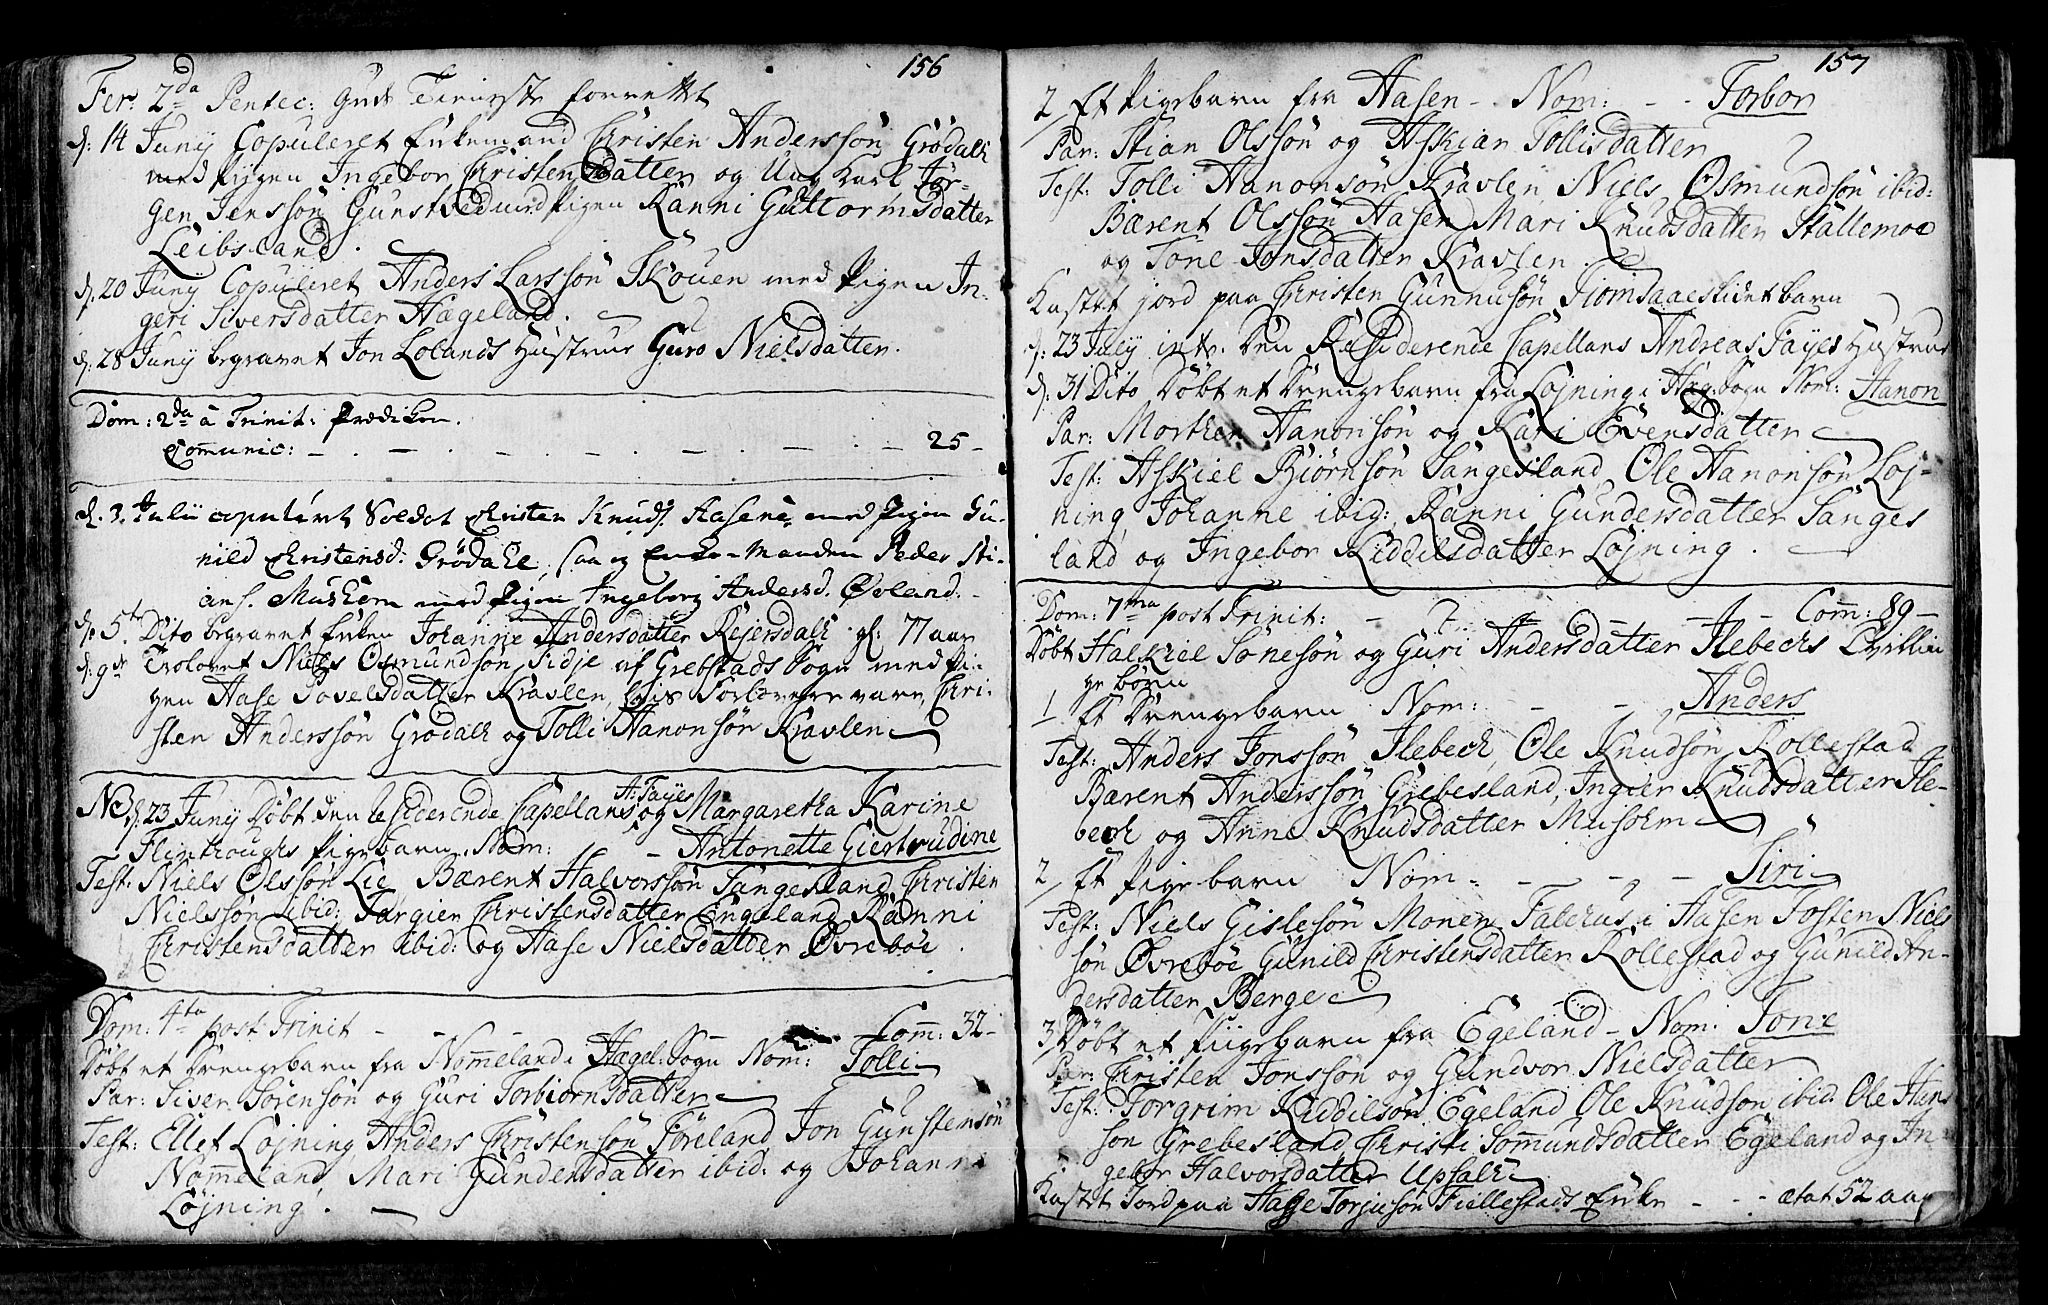 156
Fer: 2da Pentec: Guds Tieniste forrettet
d: 14 Junÿ Copuleret Enkemand Christen Anderssøn Grødalh
med Pigen Ingebor Christensdatter og Ung Karl Jør-
gen Jenssøn Gunstved med Pigen Ranni Guttormsdatter
Leibsland.
d. 20 Junÿ Copuleret Anders Larssøn Skouen med Pigen In-
geri Siversdatter Hægeland.
d. 28 Junÿ begravet Jon Lolands Hustrue Guro Nielsdatter.
Dom: 2da à Trinit: Prædiken.
Com̅unic: - . - . - . - . - 25 -
d. 3. Julii copuleret Soldat Christen Knuds. Aasene med Pigen Gu-
nild Christensd: Grødahl, saa og Enke-Manden Peder Sti-
ans. Mushom med Pigen Ingeborg Andersd. Øvland.
d: 5te Dito begravet Enken Johanne Andersdatter Rejersdalh gl: 77 aar
d: 9de Trolovet Niels Osmundsøn Tidje af Grebstads Sogn med Pi-
gen Aase Povelsdatter Kravlen, hvis Forlovere vare, Chri-
sten Anderssøn Grødalh og Tolli Hanonsøn Kravlen
NB d: 23 Junÿ Døbt den Residerende Capellans A: Fayes og Margaretha Karine
Flinthoughs Pigebarn, Nom: - Antonette Giertrudine
Test: Niels Olssøn Lie Bærent Halvorssøn Sangesland Christen
Nielssøn ibid: Targier Christensdatter Engeland Ranni
Christensdatter ibid: og Aase Nielsdatter Øvrebøe.
Dom: 4ta post Trinit - - - Com̅: 32 -
Døbt et Drengebarn fra Nom̅eland i Hægel: Sogn Nom: Tolli
Par: Siver Sørensøn og Guri Torbiørnsdatter
Test: Ellef Løjning Anders Christensøn Føreland Jon Gunstensøn
Nom̅eland Mari Gundersdatter ibid: og Johanne
Løjning.
157
2/ Et Pigebarn fra Aasen - . Nom: - - Torbor
Par: Stian Olssøn og Askier Tollisdatter
Test: Tolli Hanonsøn Kravlen Niels Osmundsøn ibid:
Bærent Olssøn Aasen Mari Knudsdatter Stallemoe
og Tone Jonsdatter Kravlen.
Kastet jord paa Christen Gunnusøn Fiomsaaes lidet barn
d: 23 Julÿ intr. den Residerende Capellans Andreas Fayes Hustrue
d: 31 Dito Døbt et Drengebarn fra Løjning i Hæg: Sogn Nom: Hanon
Par: Morthen Hanonsøn og Kari Evensdatter
Test: Askiel Biørnsøn Sangesland, Ole Hanonsøn Løj-
ning Johanne ibid: Ranni Gundersdatter Sanges
land og Ingebor Kiddelsdatter Løjning.
Dom: 7ma post Trinit: - - - Com̅: 89 -
Døbt Halkiel Sønesøn og Guri Andersdatter Ilebechs Tvillin
ge børn
1 Et Drengebarn Nom: - - - Anders
Test: Anders Jonssøn Ilebech, Ole Knudsøn Rollestad
Bærent Anderssøn Grebesland, Ingier Knudsdatter Ile-
bech og Anne Knudsdatter Musohm
2/ Et Pigebarn Nom: - - - Siri
Test: Niels Gislesøn Monen Talehus i Aasen Tosten Niels
søn Øvrebøe Gunild Christensdatter Rollestad og Gunild An-
dersdatter Berge
3/ Døbt et Piigebarn fra Egeland - Nom: Tone
Par: Christen Jonssøn og Gundvor Nielsdatter
Test: Torgrim Kiddilsøn Egeland Ole Knudsøn ibid: Ole Hans
søn Grebesland, Christi Som̅undsdatter Egeland og In-
gebor Halvorsdatter Upsalh
Kastet Jord paa Aage Torjusøn Fiellestads Enke - - ætat 52 aar